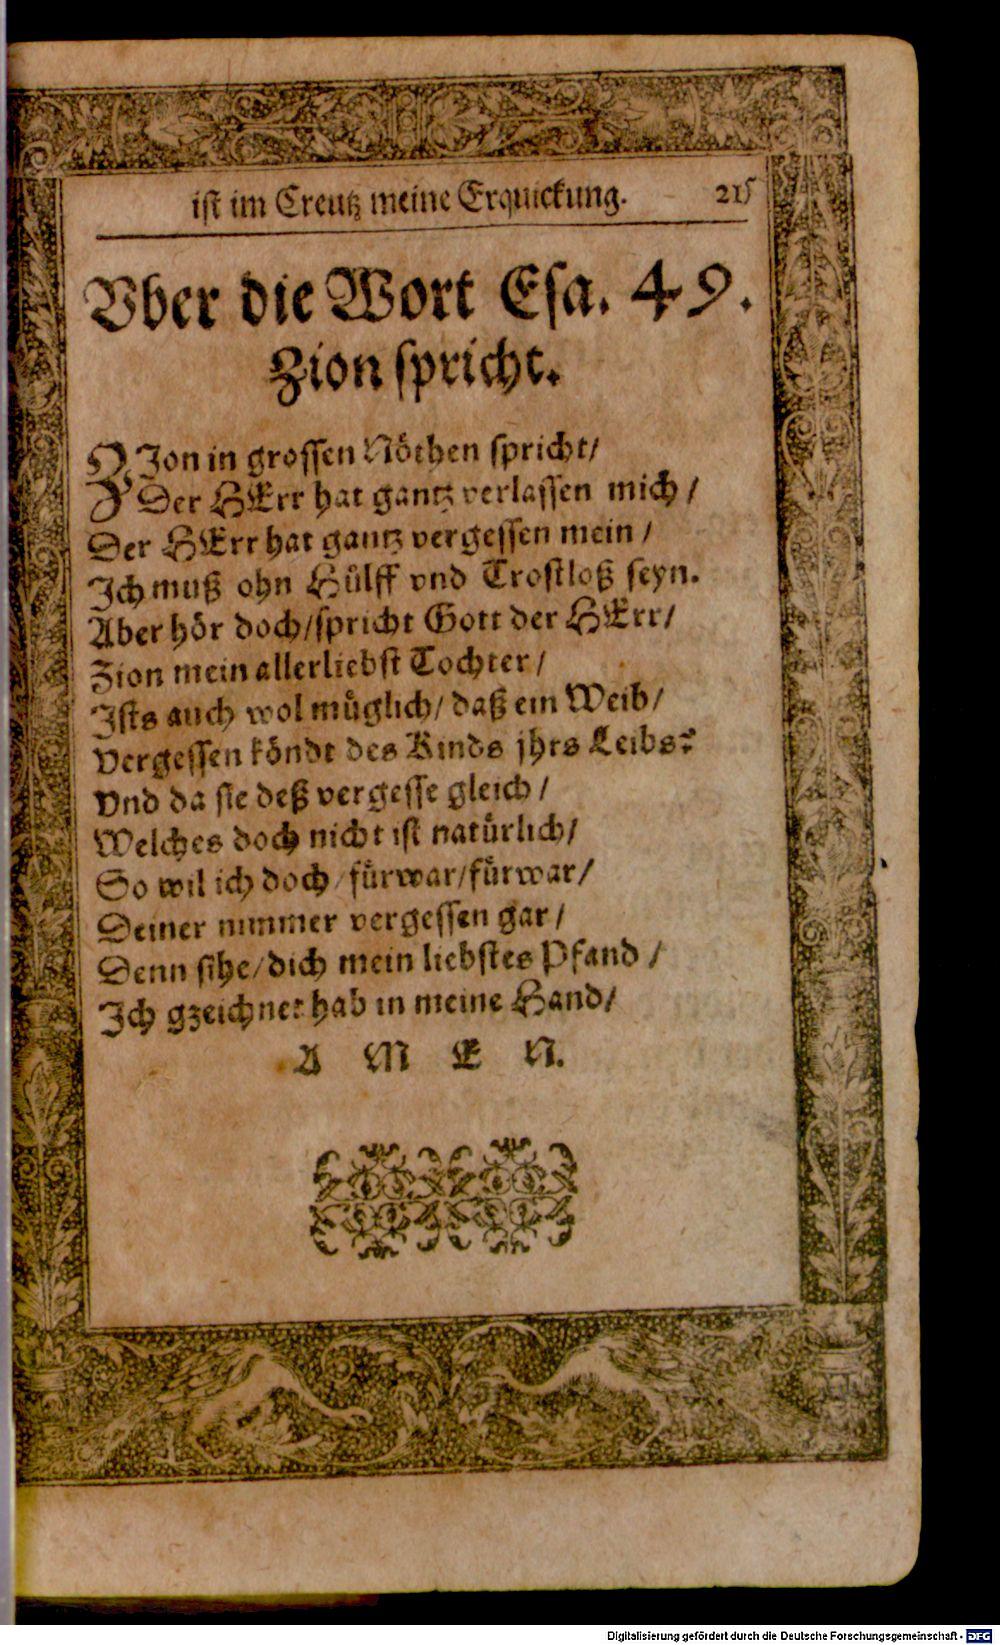 ist im Creutz meine Erquickung. 215
Vber die Wort Esa. 49.
Zion spricht.
ZIon in grossen Nöthen spricht/
Der HErr hat gantz verlassen mich/
Der HErr hat gantz vergessen mein/
Ich muß ohn Hülff vnd Trostloß seyn.
Aber hör doch/spricht Gott der HErr/
Zion mein allerliebst Tochter/
Ists auch wol müglich/ daß ein Weib/
Vergessen köndt des Kinds jhrs Leibs?
Vnd da sie deß vergesse gleich/
Welches doch nicht ist natürlich/
So wil ich doch/fürwar/fürwar/
Deiner nimmer vergessen gar/
Denn sihe/dich mein liebstes Pfand/
Ich gzeichnet hab in meine Hand/
A M E N.
Digitalisierung gefördert durch die Deutsche Forschungsgemeinschaft - DFG